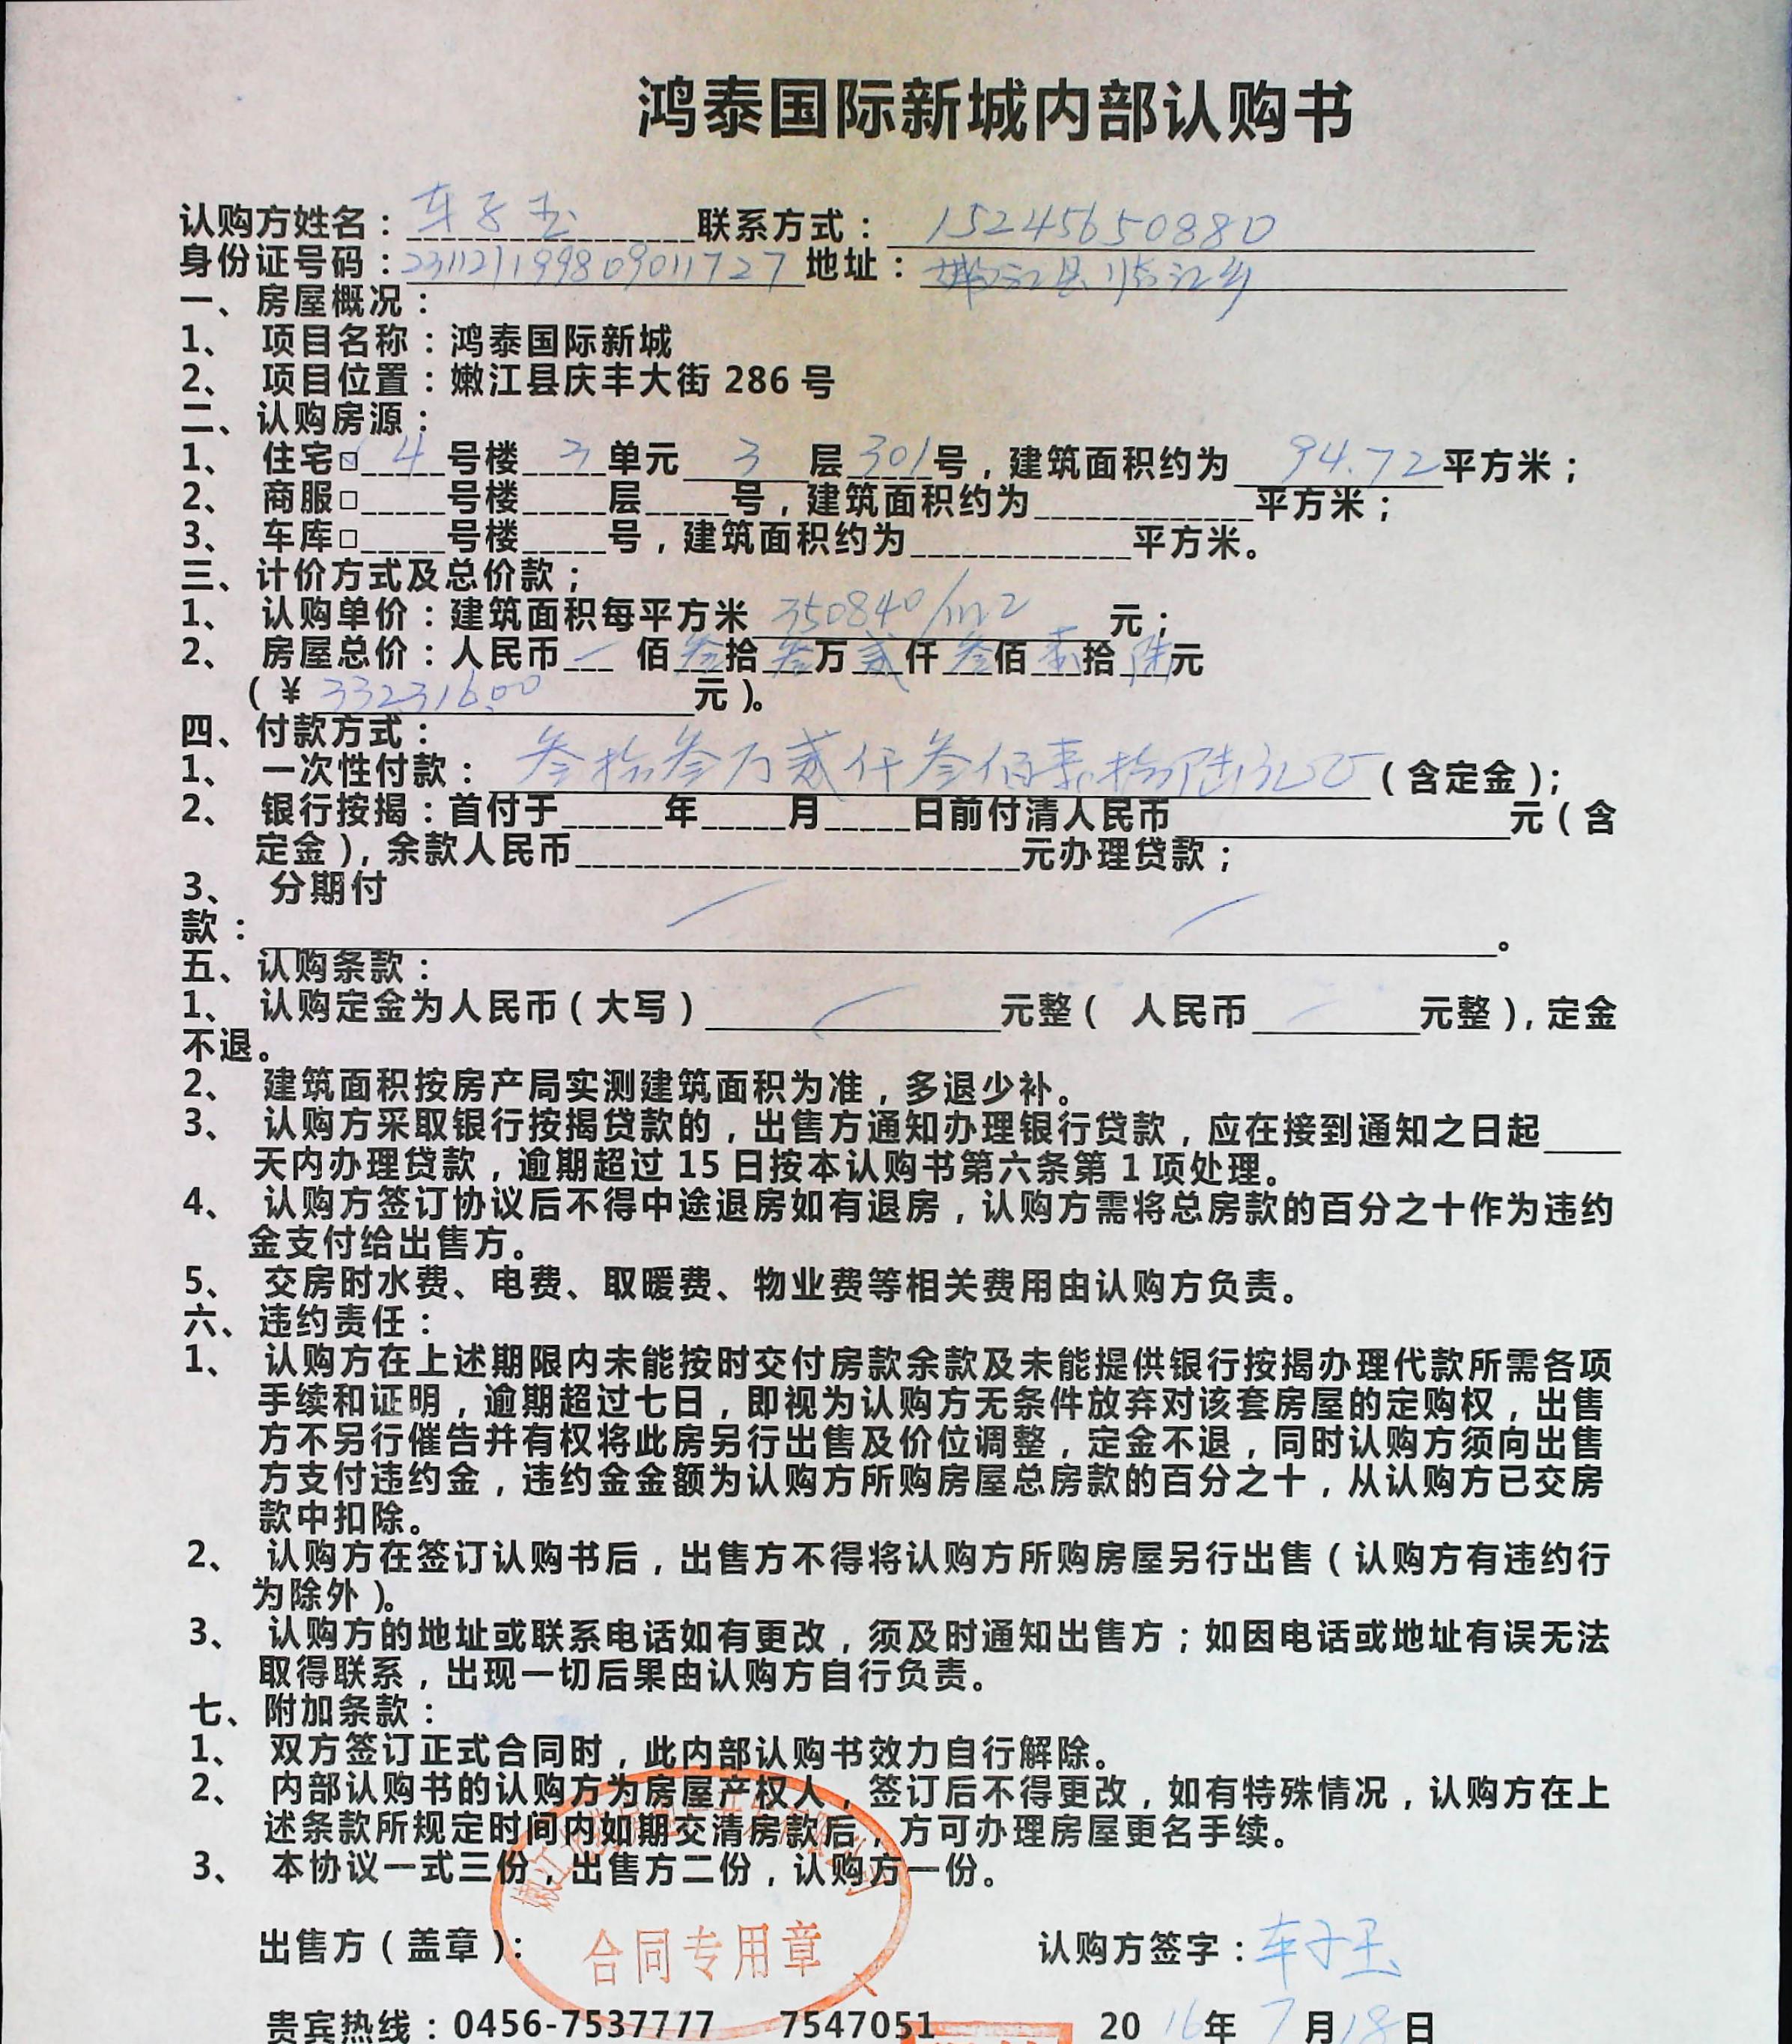 鸿泰国际新城内部认购书
认购方姓名：车子玉 联系方式：15245650880
身份证号码：231121199809011727 地址：嫩江县临江乡
一、房屋概况：
1、 项目名称：鸿泰国际新城
2、 项目位置：嫩江县庆丰大街 286 号
二、认购房源：
1、 住宅☑ 4 号楼 3 单元 3 层 301 号，建筑面积约为 94.72 平方米；
2、 商服□_____号楼_____层_____号，建筑面积约为_____________平方米；
3、 车库□_____号楼_____号，建筑面积约为_____________平方米。
三、计价方式及总价款；
1、 认购单价：建筑面积每平方米 350840/m2 元；
2、 房屋总价：人民币 一 佰 叁 拾 叁 万 贰 仟 叁 佰 壹 拾 陆 元
（¥ 332316.00 元）。
四、付款方式：
1、 一次性付款： 叁拾叁万贰仟叁佰壹拾陆元 （含定金）；
2、 银行按揭：首付于______年_____月_____日前付清人民币__________元（含
定金），余款人民币__________________________元办理贷款；
3、 分期付
款：__________。
五、认购条款：
1、 认购定金为人民币（大写）__________元整（ 人民币__________元整），定金
不退。
2、 建筑面积按房产局实测建筑面积为准，多退少补。
3、 认购方采取银行按揭贷款的，出售方通知办理银行贷款，应在接到通知之日起____
天内办理贷款，逾期超过 15 日按本认购书第六条第 1 项处理。
4、 认购方签订协议后不得中途退房如有退房，认购方需将总房款的百分之十作为违约
金支付给出售方。
5、 交房时水费、电费、取暖费、物业费等相关费用由认购方负责。
六、违约责任：
1、 认购方在上述期限内未能按时交付房款余款及未能提供银行按揭办理代款所需各项
手续和证明，逾期超过七日，即视为认购方无条件放弃对该套房屋的定购权，出售
方不另行催告并有权将此房另行出售及价位调整，定金不退，同时认购方须向出售
方支付违约金，违约金金额为认购方所购房屋总房款的百分之十，从认购方已交房
款中扣除。
2、 认购方在签订认购书后，出售方不得将认购方所购房屋另行出售（认购方有违约行
为除外）。
3、 认购方的地址或联系电话如有更改，须及时通知出售方；如因电话或地址有误无法
取得联系，出现一切后果由认购方自行负责。
七、附加条款：
1、 双方签订正式合同时，此内部认购书效力自行解除。
2、 内部认购书的认购方为房屋产权人，签订后不得更改，如有特殊情况，认购方在上
述条款所规定时间内如期交清房款后，方可办理房屋更名手续。
3、 本协议一式三份，出售方二份，认购方一份。
出售方（盖章）： 合同专用章 认购方签字：车子玉
贵宾热线：0456-7537777 7547051 2016年7月18日